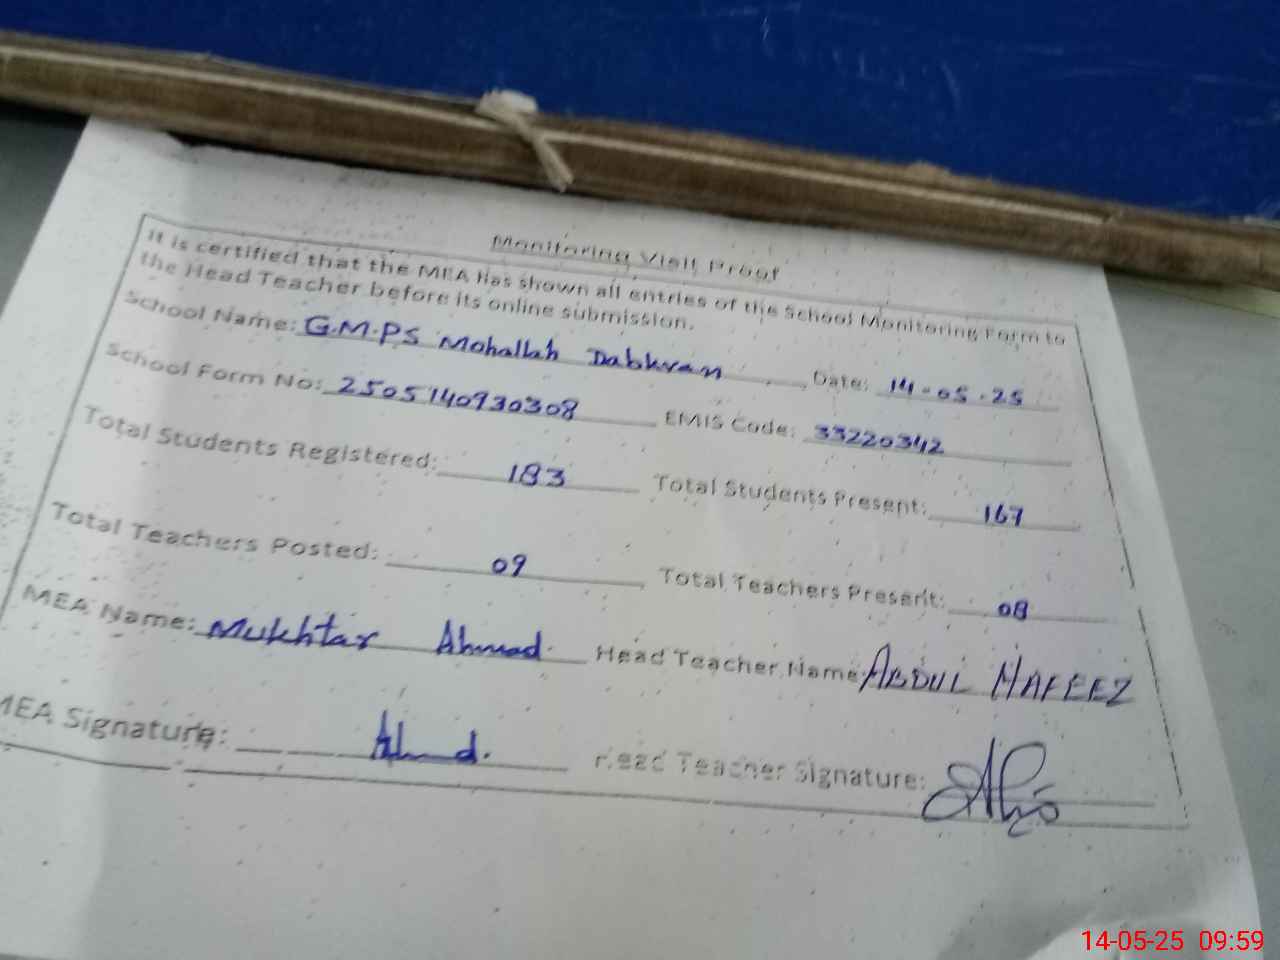 Monitoring Visit Proof
It is certified that the MEA has shown all entries of the School Monitoring Form to
the Head Teacher before its online submission.
School Name: G.M.P.S Mohallah Dabkran Date: 14-05-25
School Form No: 2505140930308 EMIS Code: 33220342
Total Students Registered: 183 Total Students Present: 167
Total Teachers Posted: 09 Total Teachers Present: 08
MEA Name: Mukhtar Ahmad. Head Teacher Name: ABDUL HAFEEZ
MEA Signature: Ahmd. Head Teacher Signature:
14-05-25 09:59